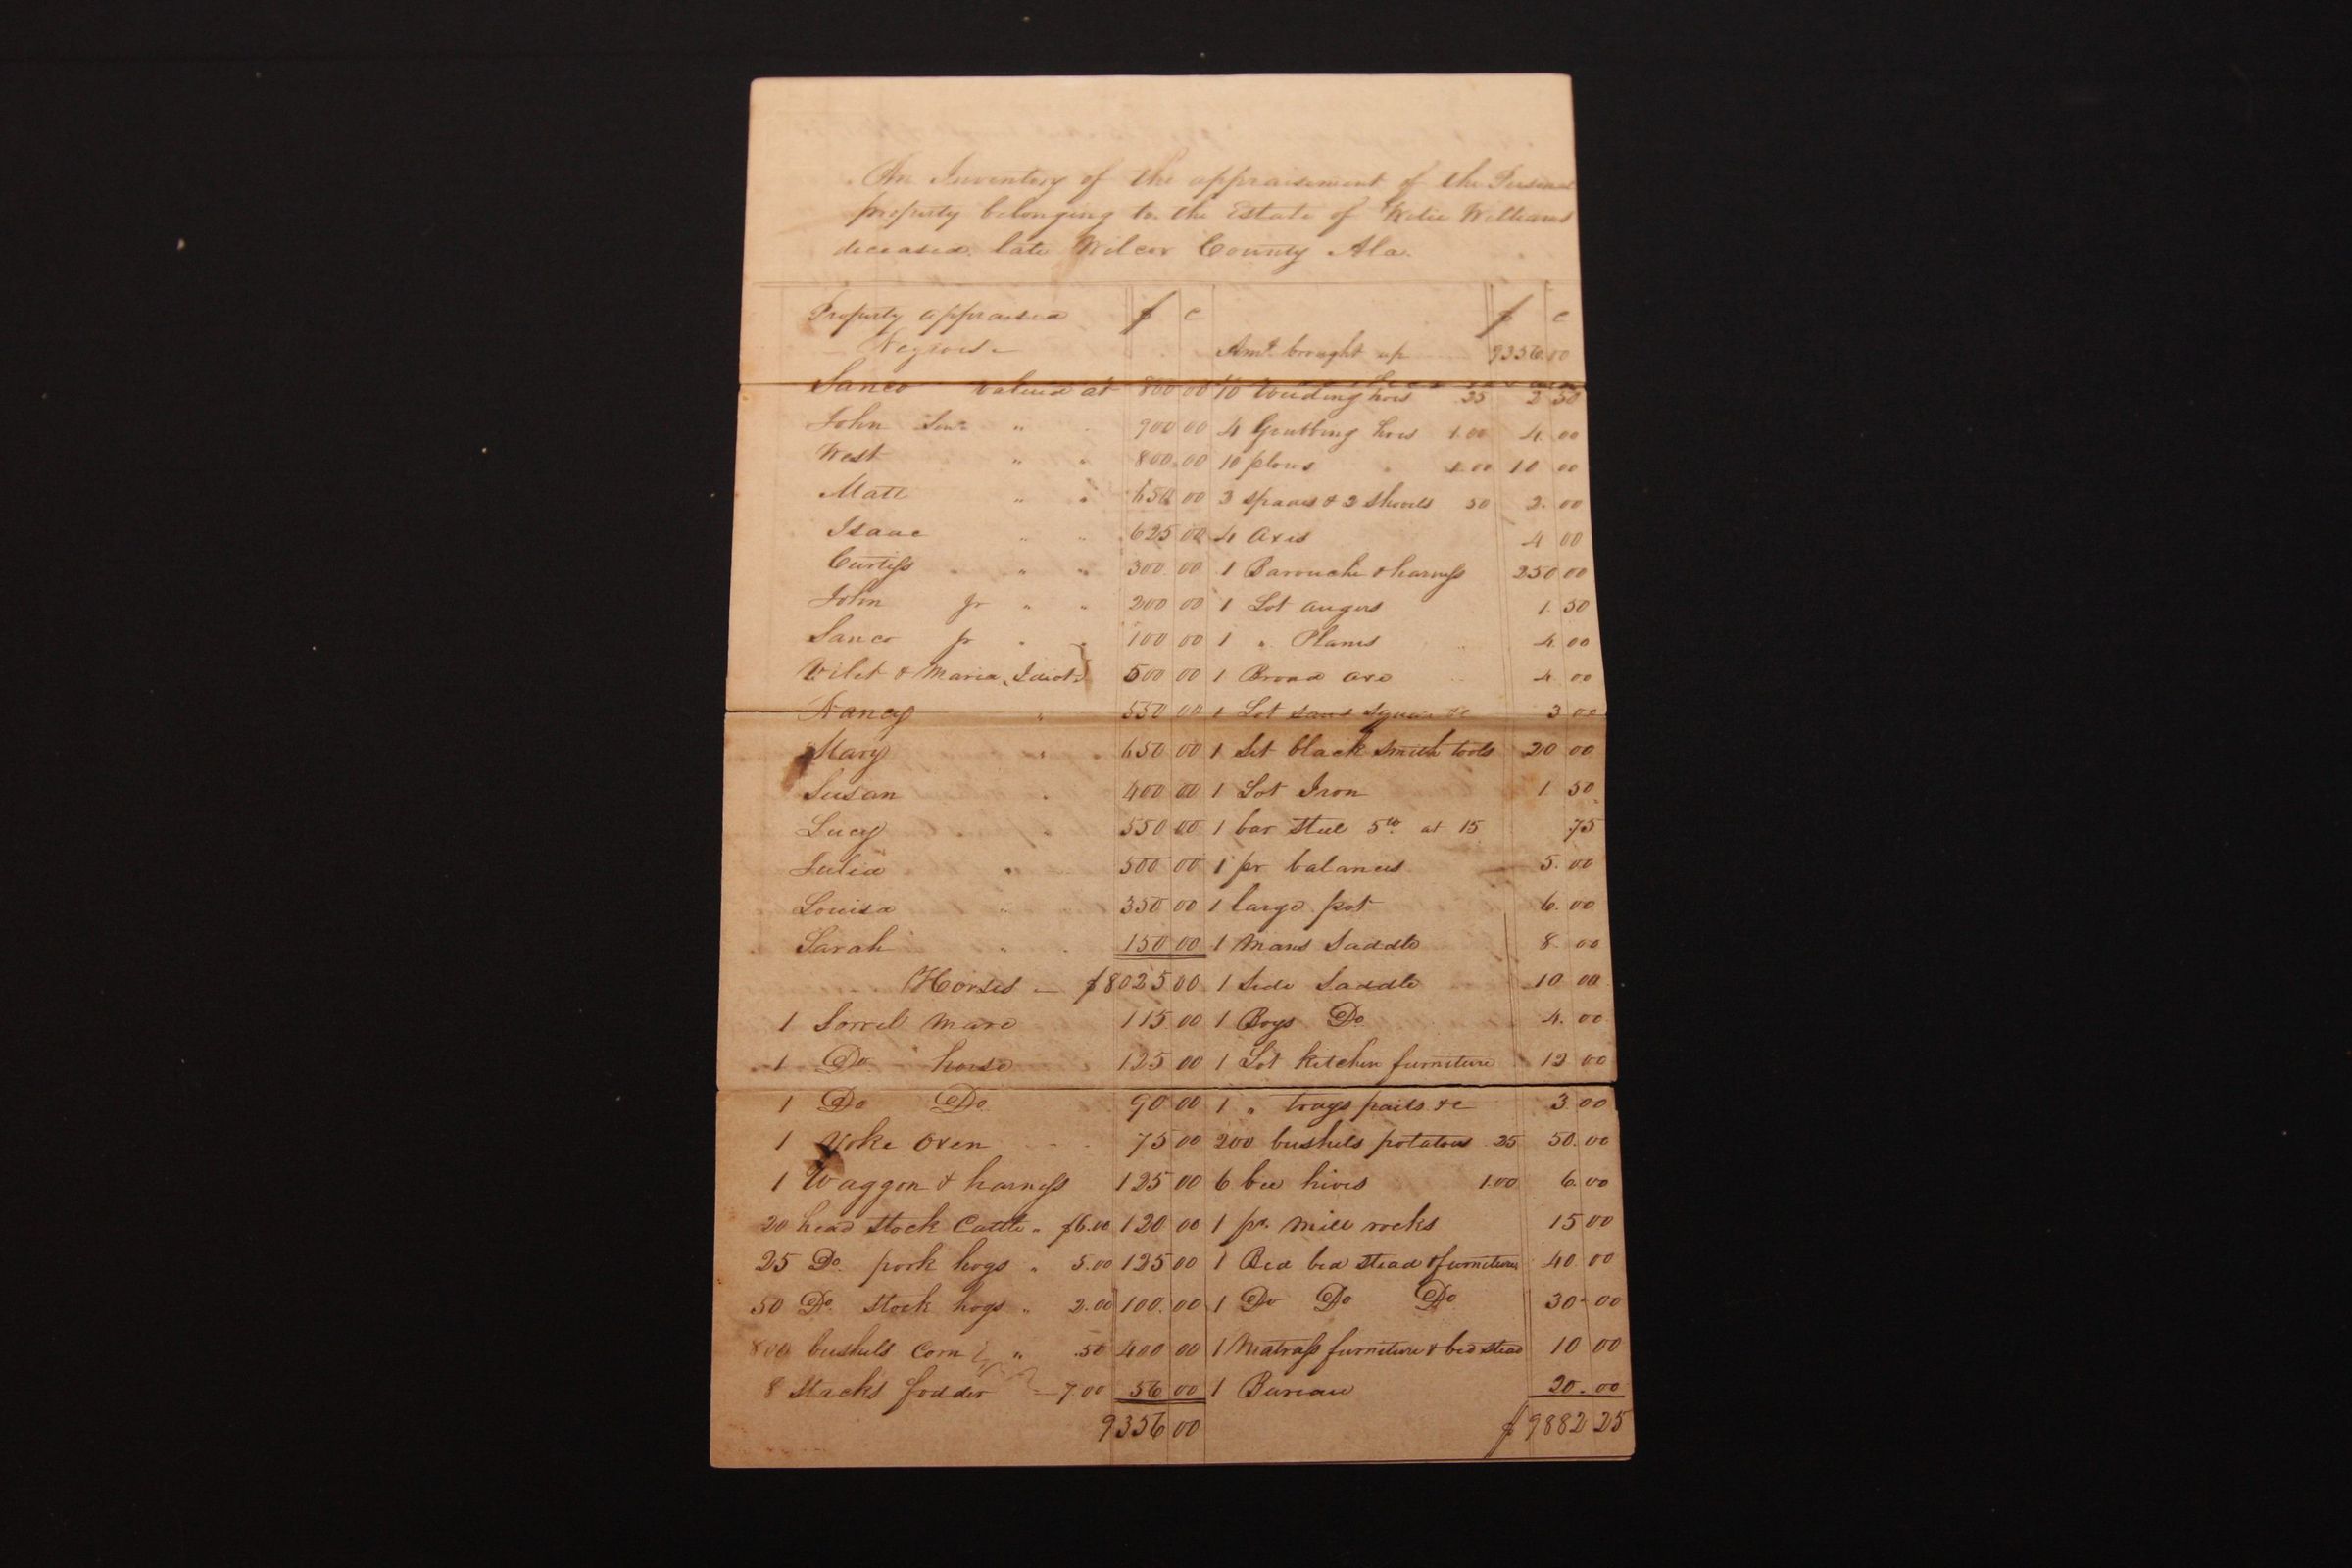 An Inventory of the appraisement of the Personal
property belonging to the Estate of Williams
deceased late Wilcox County Ala.
Property appraised $ c
Negroes
Sanco valued at 800 00
John Senr " 900 00
West " " 800.00
Matt " " 650 00
Isaac " " 625 00
Curtiss " " 300.00
John jr " " 200 00
Sanco jr " " 100 00
Vilet & Maria, Idiots 500 00
Nancy " 550 00
Mary " 650 00
Susan " 400 00
Lucy " 550 00
Julia " 500 00
Louisa " 350 00
Sarah " 150 00
Horses — $8025 00
1 Sorrel mare 115 00
1 Do horse 125 00
1 Do Do 90 00
1 Yoke Oxen 75 00
1 Waggon & harness 125 00
20 head stock Cattle " $6.00 120 00
25 Do. pork hogs " 5.00 125 00
50 Do. stock hogs " 2.00 100.00
800 bushels corn " .50 400 00
8 stacks fodder — 7.00 56 00
9356 00
$ c
Amt. brought up 9356.00
10 weeding hoes .25 2 50
4 Grubbing hoes 1.00 4.00
10 plows 1.00 10 00
3 spades & 2 shovels 50 2.00
4 axes 4 00
1 Barouche & harness 250 00
1 Lot augers 1.50
1 " Planes 4.00
1 Broad axe 4 00
1 Lot saws square &c 3 00
1 Set black smith tools 20 00
1 Lot Iron 1 50
1 bar steel 5lb at 15 .75
1 pr balances 5.00
1 large pot 6.00
1 mans Saddle 8.00
1 Side Saddle 10 00
1 Boys Do 4.00
1 Lot kitchen furniture 12 00
1 " trays pails &c 3.00
200 bushels potatoes .25 50.00
6 bee hives 1.00 6.00
1 pr. mill rocks 15 00
1 Bed bed stead & furniture 40.00
1 Do Do Do 30.00
1 Matrass furniture & bed stead 10 00
1 Bureau 20.00
$9882 25